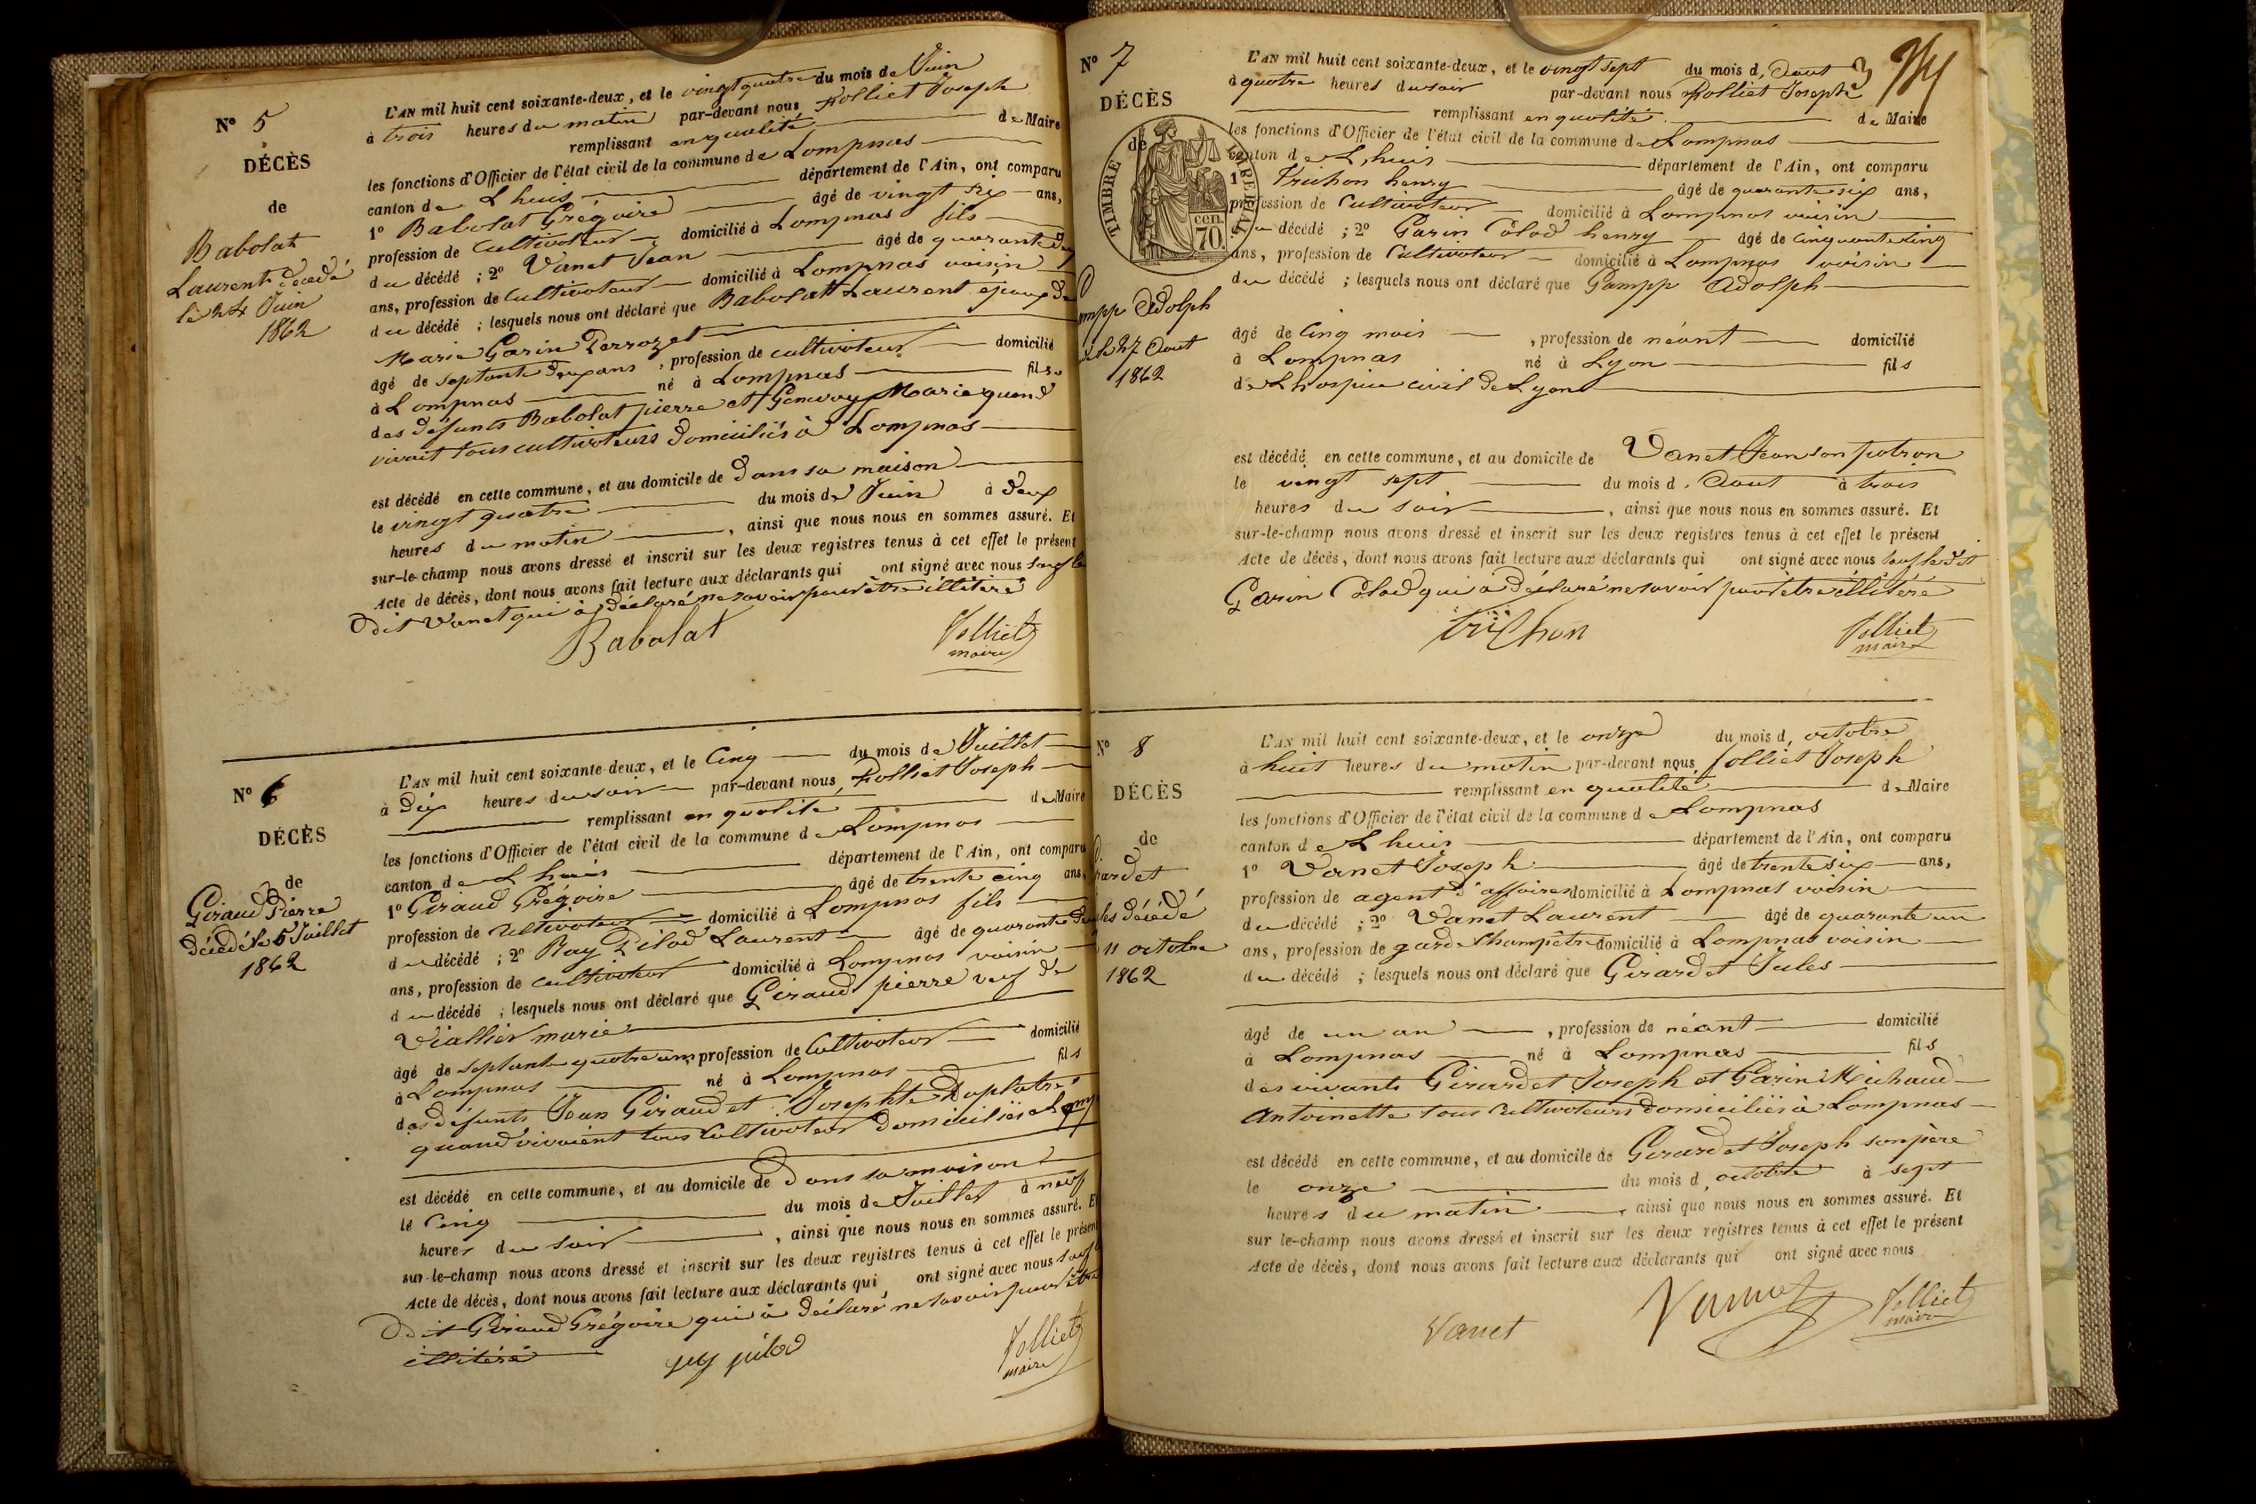 N° 5
DÉCÈS
de
Babolat
Laurent décédé
le 24 Juin
1862
L'AN mil huit cent soixante-deux, et le vingt quatre du mois de Juin
à trois heures du matin par-devant nous Folliet Joseph
remplissant en qualité de Maire
les fonctions d'Officier de l'état civil de la commune de Lompnas
canton de Lhuis département de l'Ain, ont comparu
1° Babolat Grégoire âgé de vingt six ans,
profession de Cultivateur domicilié à Lompnas fils
du décédé ; 2° Vanet Jean âgé de quarante
ans, profession de Cultivateur domicilié à Lompnas voisin
du décédé ; lesquels nous ont déclaré que Babolat Laurent epoux de
Marie Garin Perrozet
âgé de septante deux ans, profession de cultivateur domicilié
à Lompnas né à Lompnas fils
des défunts Babolat pierre et Marie quand
vivait tous cultivateurs domiciliés à Lompnas
est décédé en cette commune, et au domicile de dans sa maison
le vingt quatre du mois de Juin à deux
heures du matin, ainsi que nous nous en sommes assuré. Et
sur-le-champ nous avons dressé et inscrit sur les deux registres tenus à cet effet le présent
Acte de décès, dont nous avons fait lecture aux déclarants qui ont signé avec nous sauf le
dit Vanet qui à déclaré ne savoir pour être illitéré
Babolat
Folliet
maire
N° 6
DÉCÈS
de
Giraud Pierre
décédé le 5 Juillet
1862
L'AN mil huit cent soixante-deux, et le Cinq du mois de Juillet
à dix heures du soir par-devant nous Folliet Joseph
remplissant en qualité de Maire
les fonctions d'Officier de l'état civil de la commune de Lompnas
canton de Lhuis département de l'Ain, ont comparu
1° Giraud Grégoire âgé de trente cinq ans,
profession de Cultivateur domicilié à Lompnas fils
du décédé ; 2° Ray Pilod Laurent âgé de quarante deux
ans, profession de cultivateur domicilié à Lompnas voisin
du décédé ; lesquels nous ont déclaré que Giraud pierre veuf de
Viallier marie
âgé de septante quatre ans, profession de Cultivateur domicilié
à Lompnas né à Lompnas fils
des défunts Jean Giraud et Josephte Duplatre
quand vivaient tous Cultivateur domiciliés à
est décédé en cette commune, et au domicile de dans sa maison
le Cinq du mois de Juillet à neuf
heures du soir, ainsi que nous nous en sommes assuré. Et
sur-le-champ nous avons dressé et inscrit sur les deux registres tenus à cet effet le présent
Acte de décès, dont nous avons fait lecture aux déclarants qui ont signé avec nous sauf le
dit Giraud Grégoire qui à déclaré ne savoir pour être
illitéré
rey pilod
Folliet
maire
N° 7
DÉCÈS
de
TIMBRE IMPÉRIAL
70 cen.
mpp Adolph
le 27 Aout
1862
L'AN mil huit cent soixante-deux, et le vingt sept du mois d'Aout
à quatre heures du soir par-devant nous Folliet Joseph
remplissant en qualité de Maire
les fonctions d'Officier de l'état civil de la commune de Lompnas
canton de Lhuis département de l'Ain, ont comparu
1° Trichon henry âgé de quarante six ans,
profession de Cultivateur domicilié à Lompnas voisin
du décédé ; 2° Garin Colod henry âgé de cinquante cinq
ans, profession de Cultivateur domicilié à Lompnas voisin
du décédé ; lesquels nous ont déclaré que Gampp Adolph
âgé de Cinq mois, profession de néant domicilié
à Lompnas né à Lyon fils
de Lhospice civil de Lyon
est décédé en cette commune, et au domicile de Vanet Jean son patron
le vingt sept du mois d'Aout à trois
heures du soir, ainsi que nous nous en sommes assuré. Et
sur-le-champ nous avons dressé et inscrit sur les deux registres tenus à cet effet le présent
Acte de décès, dont nous avons fait lecture aux déclarants qui ont signé avec nous sauf le dit
Garin Colod qui à déclaré ne savoir pour être illitéré
trichon
Folliet
maire
N° 8
DÉCÈS
de
ardet
les décédé
11 octobre
1862
L'AN mil huit cent soixante-deux, et le onze du mois d'octobre
à huit heures du matin par-devant nous folliet Joseph
remplissant en qualité de Maire
les fonctions d'Officier de l'état civil de la commune de Lompnas
canton de Lhuis département de l'Ain, ont comparu
1° Vanet Joseph âgé de trente six ans,
profession de agent d'affaires domicilié à Lompnas voisin
du décédé ; 2° Vanet Laurent âgé de quarante un
ans, profession de garde Champêtre domicilié à Lompnas voisin
du décédé ; lesquels nous ont déclaré que Girardet Jules
âgé de un an, profession de néant domicilié
à Lompnas né à Lompnas fils
des vivants Girardet Joseph et Garin Michaud
Antoinette tous Cultivateurs domiciliés à Lompnas
est décédé en cette commune, et au domicile de Girardet Joseph son père
le onze du mois d'octobre à sept
heures du matin, ainsi que nous nous en sommes assuré. Et
sur le-champ nous avons dressé et inscrit sur les deux registres tenus à cet effet le présent
Acte de décès, dont nous avons fait lecture aux déclarants qui ont signé avec nous
Vanet
Vannet
Folliet
maire